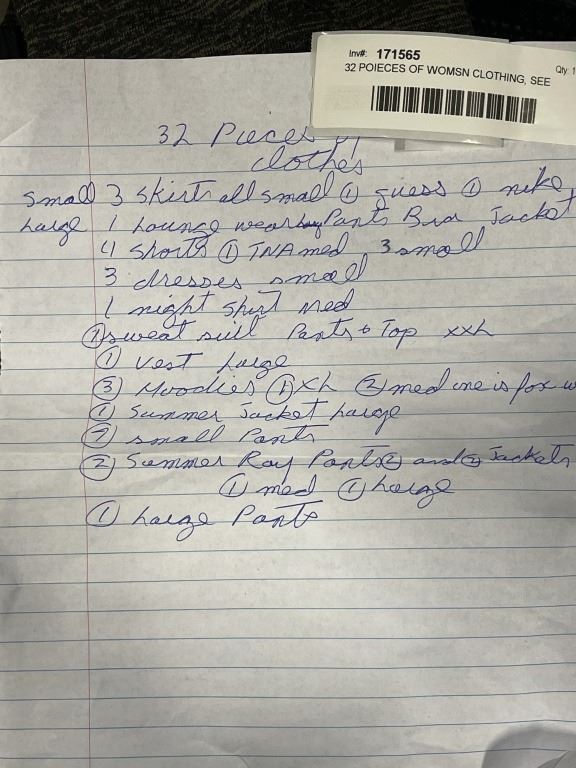 Inv#: 171565
32 POIECES OF WOMSN CLOTHING, SEE
Qty: 1
32 Pieces of
clothes
Small 3 Skirts all small ① guess ① nike
Large 1 Lounge wear Pants Bra Jacket
4 Shorts ① TNA med 3 small
3 dresses small
1 night Shirt med
① sweat suit Pants + Top xxL
① Vest Large
③ Hoodies ① XL ② med one is fox
① Summer Jacket Large
⑦ small Pants
② Summer Ray Pants ② and ② Jackets
① med ① Large
① Large Pants